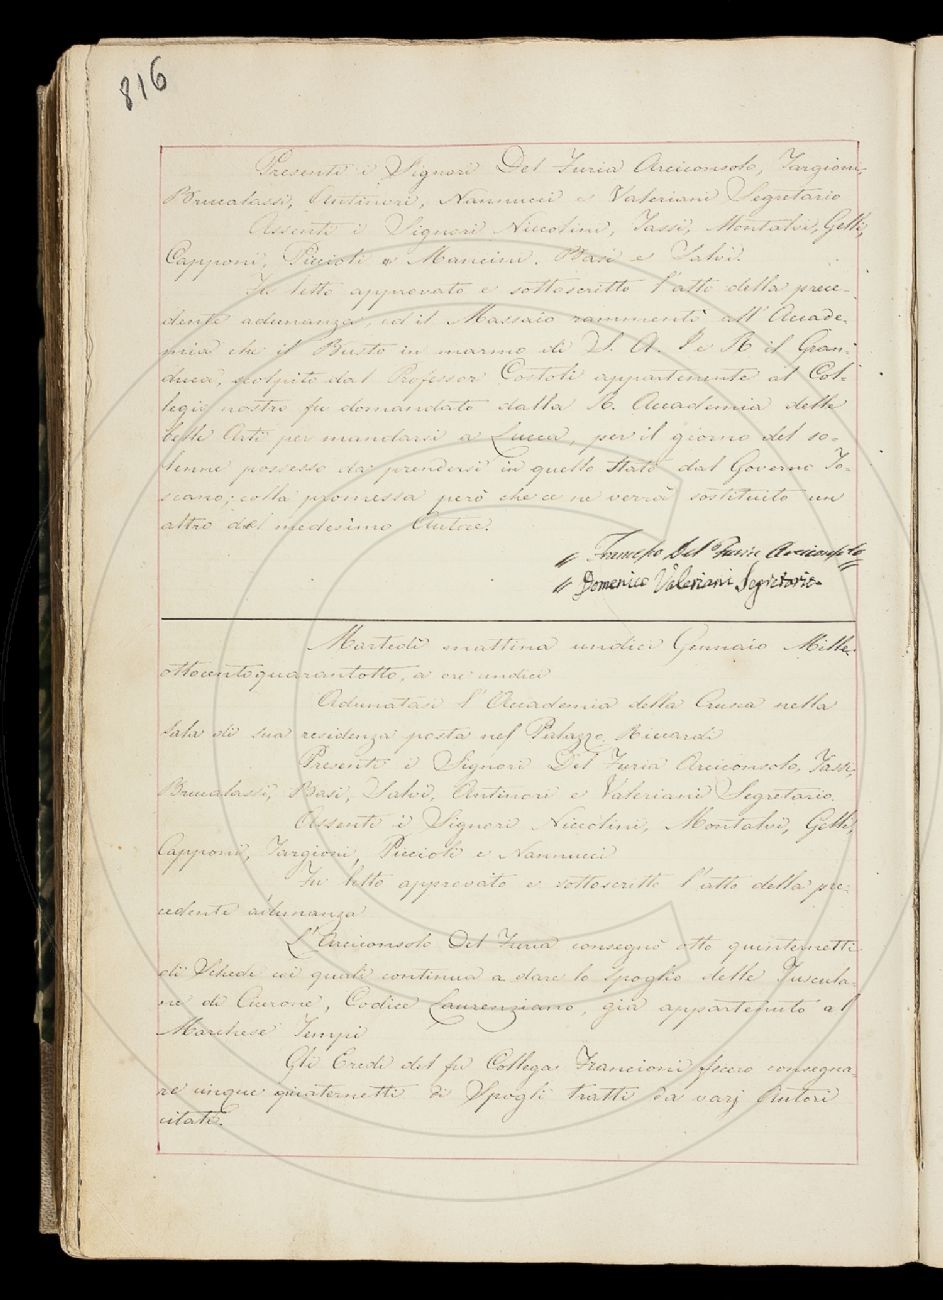 816
Presenti i Signori Del Furia Arciconsolo, Targioni,
Brucalassi, Antinori, Nannucci e Valeriani Segretario
Assenti i Signori Niccolini, Tassi, Montalvi, Gelli,
Capponi, Piccioli e Mancini, Basi e Salvi.
Fu letto approvato e sottoscritto l'atto della prece-
dente adunanza, ed il Massaio rammentò all'Accade-
mia che il Busto in marmo di S. A. I. e R. il Gran-
duca, scolpito dal Professor Costoli appartenente al Col-
legio nostro fu domandato dalla R. Accademia delle
belle Arti per mandarsi a Lucca, per il giorno del so-
lenne possesso da prendersi in quello Stato dal Governo To-
scano; colla promessa però che ce ne verrà sostituito un
altro del medesimo Autore.
// Francesco Del Furia Arciconsolo
// Domenico Valeriani Segretario
Martedì mattina undici Gennaio Mille-
ottocentoquarantotto, a ore undici
Adunatasi l'Accademia della Crusca nella
Sala di sua residenza posta nel Palazzo Riccardi
Presenti i Signori Del Furia Arciconsolo, Tassi,
Brucalassi, Basi, Salvi, Antinori e Valeriani Segretario.
Assenti i Signori Niccolini, Montalvi, Gelli,
Capponi, Targioni, Piccioli e Nannucci
Fu letto approvato e sottoscritto l'atto della pre-
cedente adunanza
L'Arciconsolo Del Furia consegnò otto quinternetti
di Schede coi quali continua a dare lo spoglio delle Tuscula-
ne di Cicerone, Codice Laurenziano, già appartenuto al
Marchese Tempi
Gli Eredi del fu Collega Francioni fecero consegna-
re cinque quinternetti di Spogli tratti da varj Autori
citati.